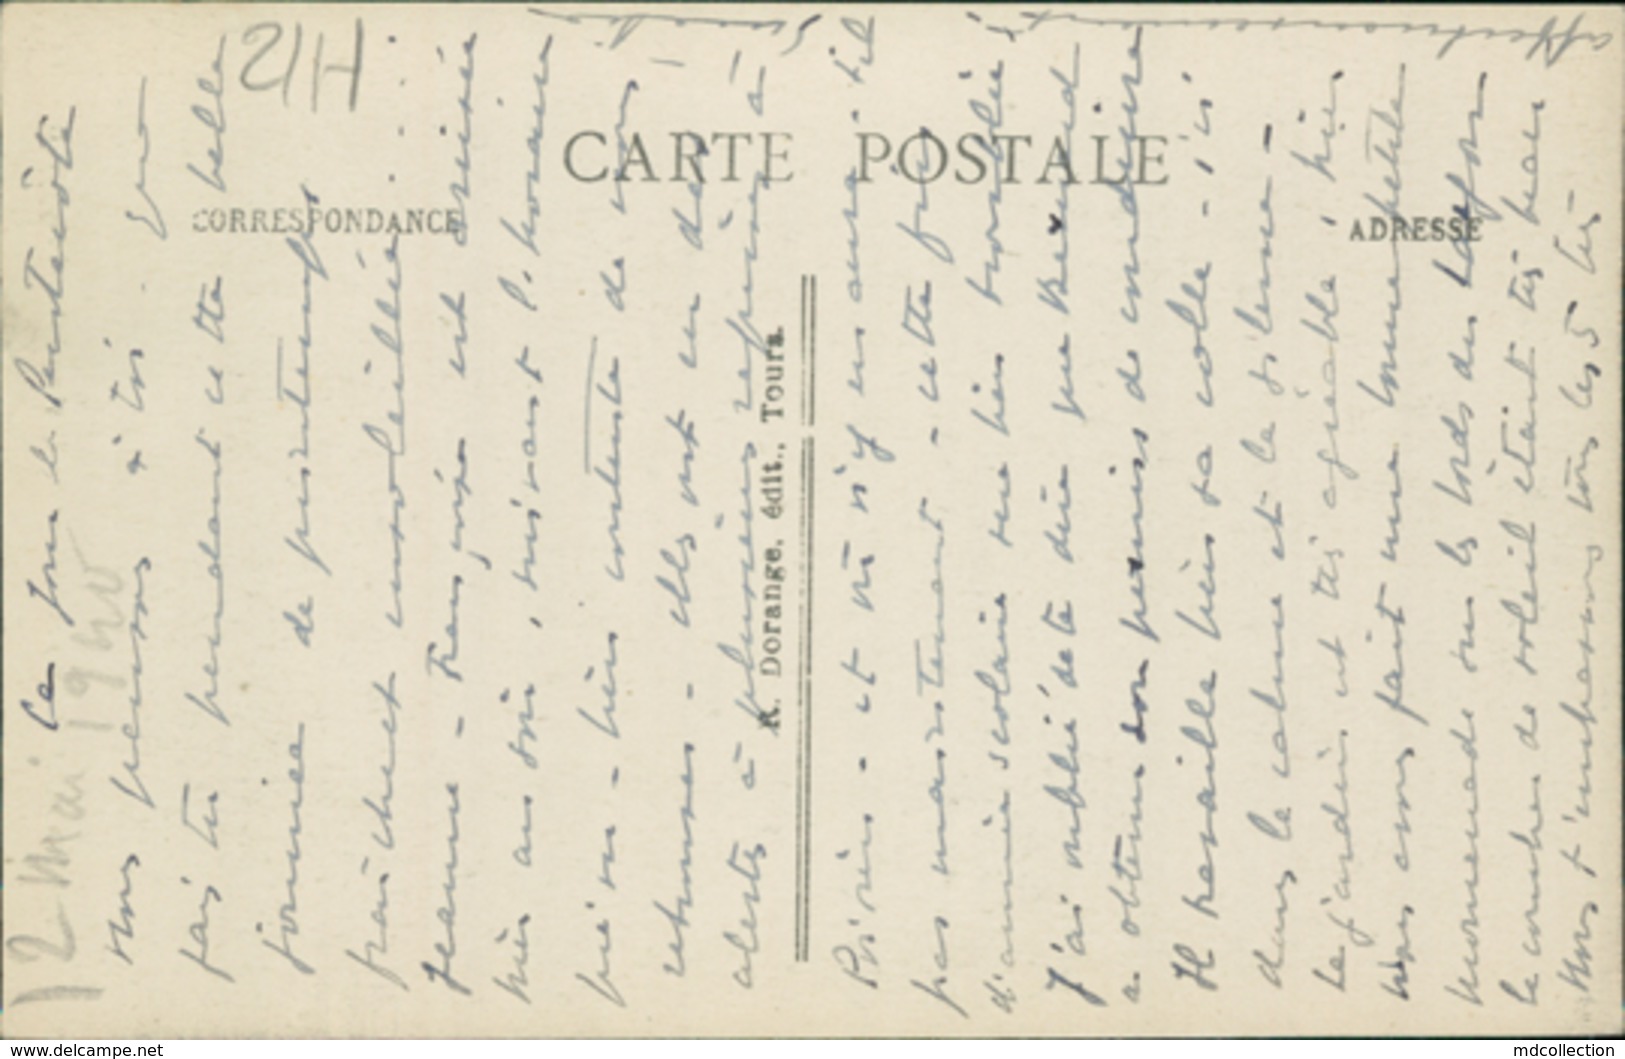 21H
CARTE POSTALE
CORRESPONDANCE
ADRESSE
A. Dorange, édit., Tours.
12 Mai 1940
Ce jour de Pentecôte
nous pensons à toi. Que
fais tu pendant cette belle
journée de printemps
fraîche et ensoleillée . . .
Jeanne - Françoise est arrivée
hier au soir, suivant
bien contente de son
- elles ont eu des
alertes à plusieurs reprises à
- et il n'y en aura
pas maintenant - cette
d'année scolaire sera bien troublée !
J'ai oublié de te dire que Bernard
a obtenu son permis de conduire
Il travaille bien sa colle - ici
dans le calme et le silence -
le jardin est très agréable, hier
nous avons fait une bonne petite
promenade sur les bords du
le coucher de soleil étant très beau
Nous t'embrassons tous les 5 très
affectueusement